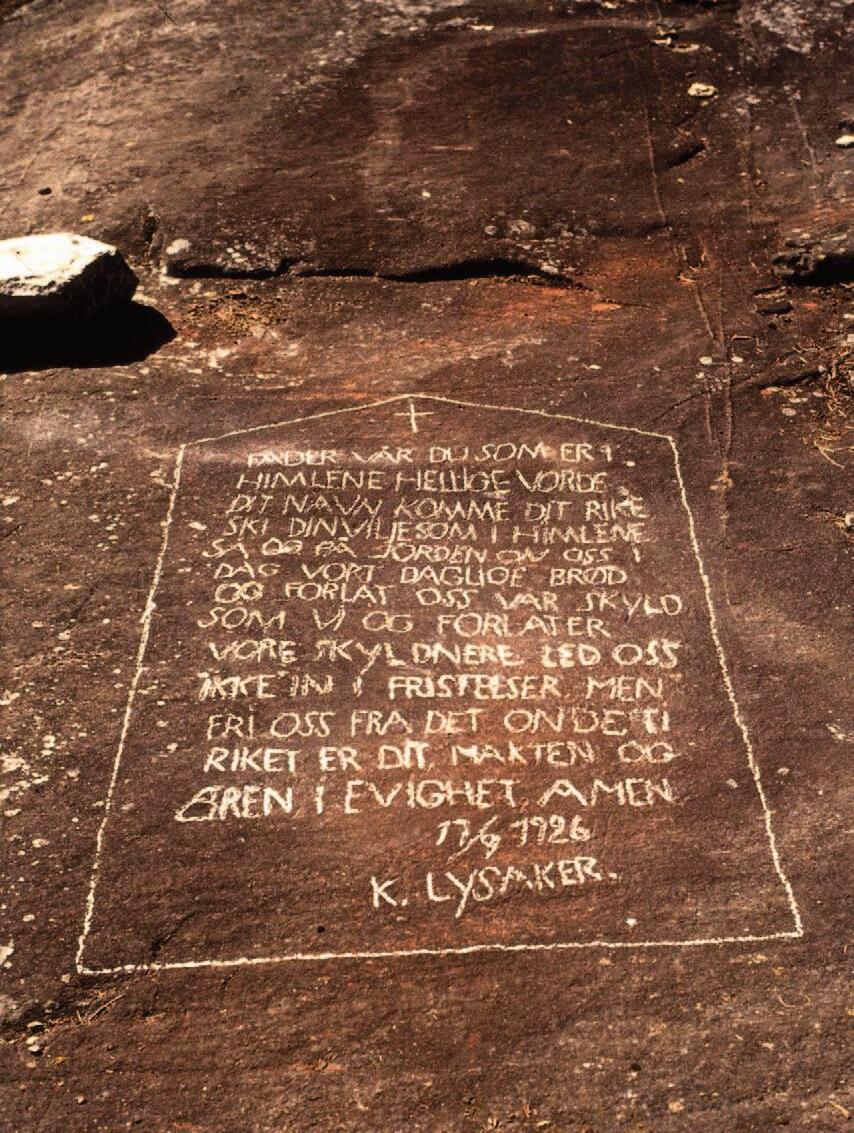 FADER VÅR DU SOM ER I
HIMLENE HELLIGE VORDE
DIT NAVN KOMME DIT RIKE
SKI DIN VILJE SOM I HIMLENE
SÅ OG PÅ JORDEN OSS I
DAG VORT DAGLIGE BRØD
OG FORLAT OSS VÅR SKYLD
SOM VI OG FORLATER
VORE SKYLDNERE LED OSS
IKKE IN I FRISTELSER MEN
FRI OSS FRA DET ONDE TI
RIKET ER DIT MAKTEN OG
ÆREN I EVIGHET. AMEN
1926
K. LYSAKER.